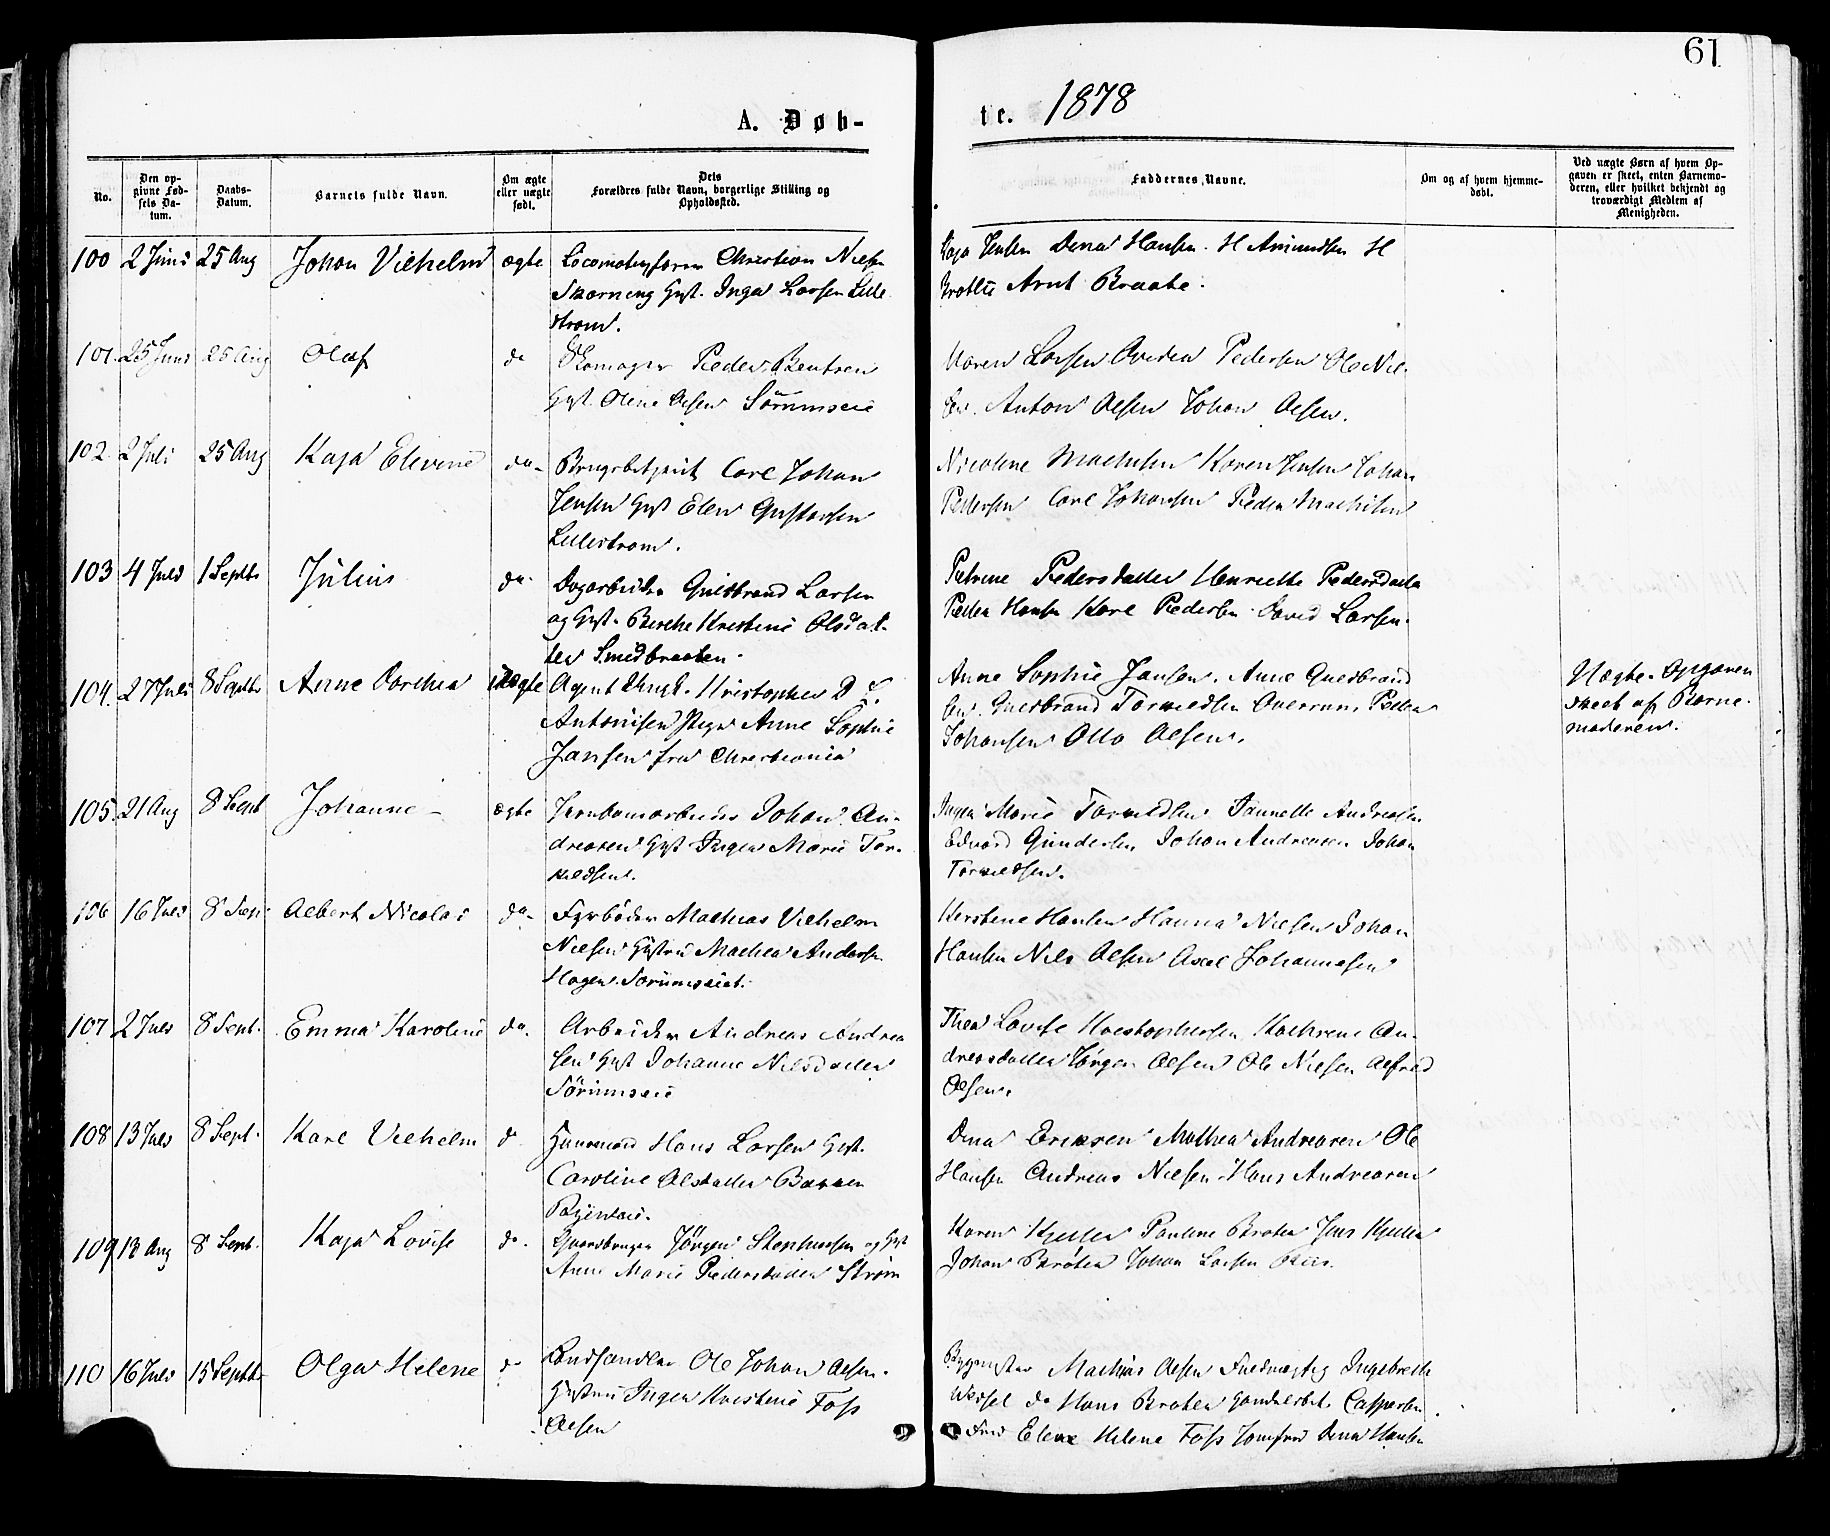 61
A. Døb-
te. 1878
No.
Den op-
givne Fød-
sels Da-
tum.
Daabs-
Datum.
Barnets fulde Navn.
Om ægte
eller uægte
født.
Dets
Forældres fulde Navn, borgerlige Stilling og
Opholdssted.
Faddernes Navne.
Om og af hvem hjemme-
døbt.
Ved uægte Børn af hvem Op-
gaven er skeet, enten Barnemo-
deren, eller hvilket bekjendt og
troværdigt Medlem af
Menigheden.
100 2 Juni 25 Aug Johan Vilhelm ægte Christian Nilsen
Gst. Inga Larsen Lille
strøm.
Kaja Jensen Dina Hansen. H Amundsen H
Arnt Braate.
101. 25 Juni 25 Aug Olaf do Skomager Peder Bentsen
Gst. Oline Olsen Sørumseie
Maren Larsen Pedersen Ole Nil-
sen. Anton Olsen Johan Olsen.
102. 2 Juli 25 Aug Kaja Elevine do- Brugsbetjent Carl Johan
Jensen Gst Elen Gustavsen
Lillestrøm.
Nicoline Mathisen Karen Jensen Johan
Pedersen Carl Johansen Peder Mathisen
103 4 Juli 1 Septb Julius do. Dagarbeider Gulbrand Larsen
og Gst. Berthe Kristine Olsdat-
ter Smedbraaten.
Petrine Pedersdatter Henriette Pedersdatter
Peder Hansen Karl Pedersen David Larsen.
104. 27 Juli 8 Septb Anne Dorthea uægte Agent Ungk. Kristopher D
Antonisen Pige Anne Sophie
Jansen fra Christiania
Anne Sophie Jansen. Anne Gulbrand
sen. Gulbrand Torvildsen Peder
Johansen Otto Olsen.
Uægte. Opgaven
skeet af Barne-
moderen.
105. 21 Aug 8 Sept Johanne - ægte Jernbanarbeider Johan An-
dreasen Gst Inger Marie Tor-
vildsen.
Inger Marie Torvildsen Jannette Andreasen
Edvard Gundersen Johan Andreasen Johan
Torvildsen.
106 16 Juli 8 Sep Albert Nicolai do- Fyrbøder Mathias Vilhelm
Nilsen Gstru Mathea Andersen
Hagen Sørumseiet.
Kirstine Hansen Hanna Nilsen Johan
Hansen Nils Olsen Axel Johannesen
107 2 Juli 8 Sept. Emma Karoline do. Arbeider Andreas Andrea
sen Gst Johanne Nilsdatter
Sørumseie
Thea Lovise Kristophersen Kathrine An-
dreasdatter Jørgen Olsen Ole Nilsen Alfred
Olsen.
108 13 Juli 8 Sept. Karl Vilhelm do Huusmand Hans Larsen Gst.
Caroline Olsdatter
Dina Eriksen Mathea Andreasen Ole
Hansen Andreas Nilsen Hans Andreasen
109 18 Aug 8 Sept. Kaja Lovise do. Gaardbruger Jørgen Stephensen og Gst
Anne Marie Pedersdatter Strøm
Karen Kjeller Pauline Braten Jens Kjeller
Johan Brøten Johan Larsen Riis.
110 16 Juli 15 Septb Olga Helene do Landhandler Ole Johan Olsen.
Gstru Inger Kristine Foss
Olsen
Bygmester Mathias Olsen Fuldmægtig Ingebreth
Wessel do Hans Braten Handelsbet. Caspersen
Fru Elene Helene Foss Jomfru Dina Hansen